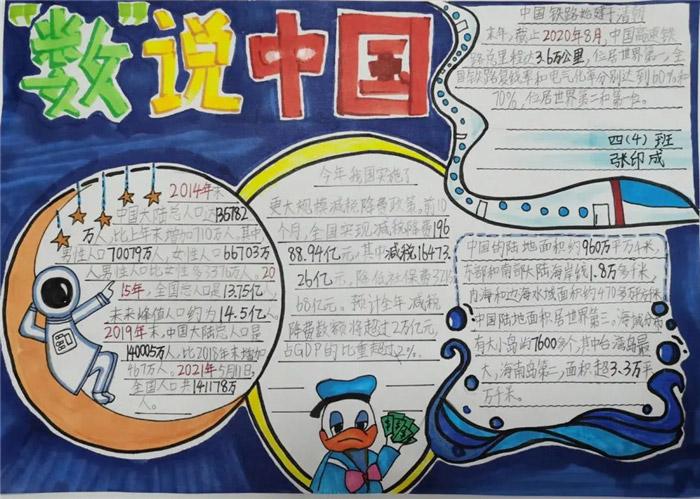 "数"说中国
中国铁路总里
末年,截止2020年8月,中国高速铁
路总里程达3.6万公里,位居世界第一,全
国铁路复线率和电气化率分别达到60%和
70%,位居世界第二和第一。
四(4)班
张印成
2014年末
中国大陆总人口达136782
万人,比上年末增加710万人,其中
男性人口70079万人,女性人口66703万
人,男性人口比女性多3376万人。20
15年,全国总人口是13.75亿,
未来峰值人口约为14.5亿人。
2019年末,中国大陆总人口是
140005万人,比2018年末增加
467万人。2021年5月11日,
全国人口共141178万
人。
今年我国实施了
更大规模减税降费政策。前10
个月,全国实现减税降费196
88.94亿元,其中减税16473.
26亿元,降低社保费3215
68亿元。预计全年减税
降费数额将超过2万亿元,
占GDP的比重超过2%。
中国的陆地面积约960万平方千米,
东部和南部大陆海岸线1.8万多千米,
内海和边海水域面积约470多万平方千米。
中国陆地面积居世界第三。海域分布
有大小岛屿7600多个,其中台湾岛最
大,海南岛第二,面积超3.3万平
方千米。